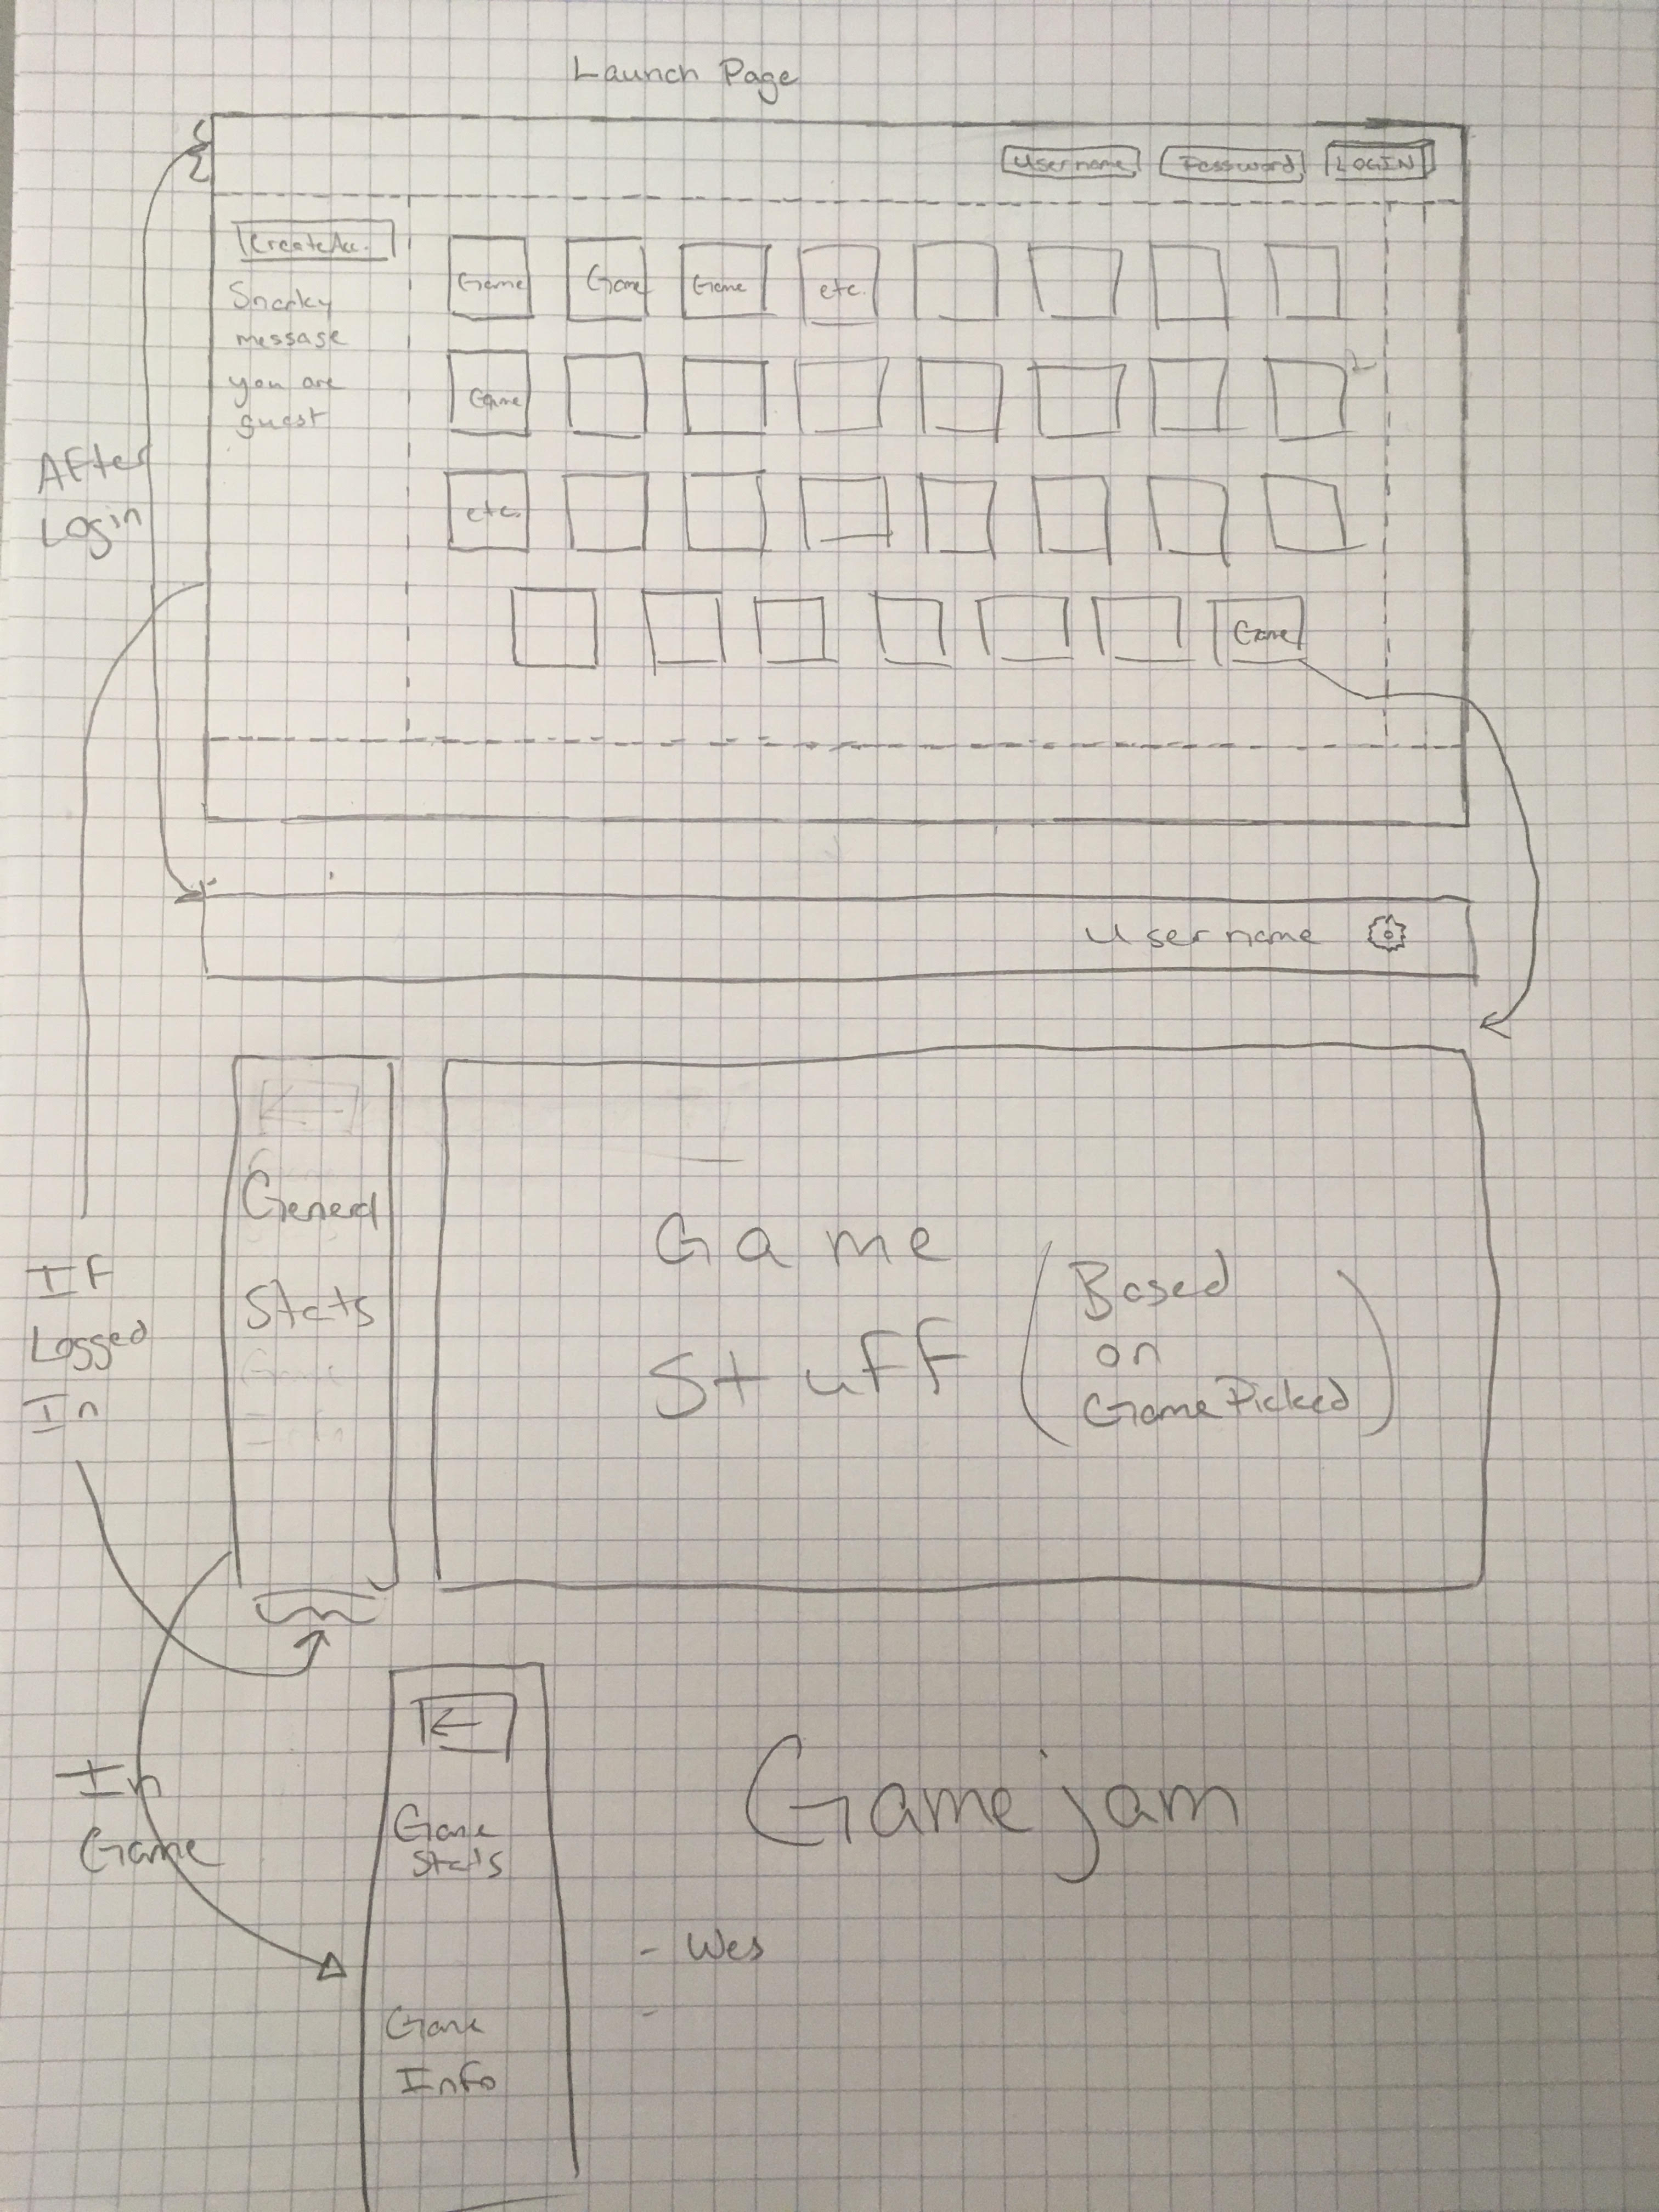 Launch Page
Username Password LOGIN
Create Acc.
Snarky
message
you are
guest
Game Game Game etc.
Game
etc.
Game
After
Login
Username
General
Stats
Game
Info
Game
Stuff
(Based
on
Game Picked)
If
Logged
In
In
Game
Game
Stats
Game
Info
Gamejam
- Wes
-